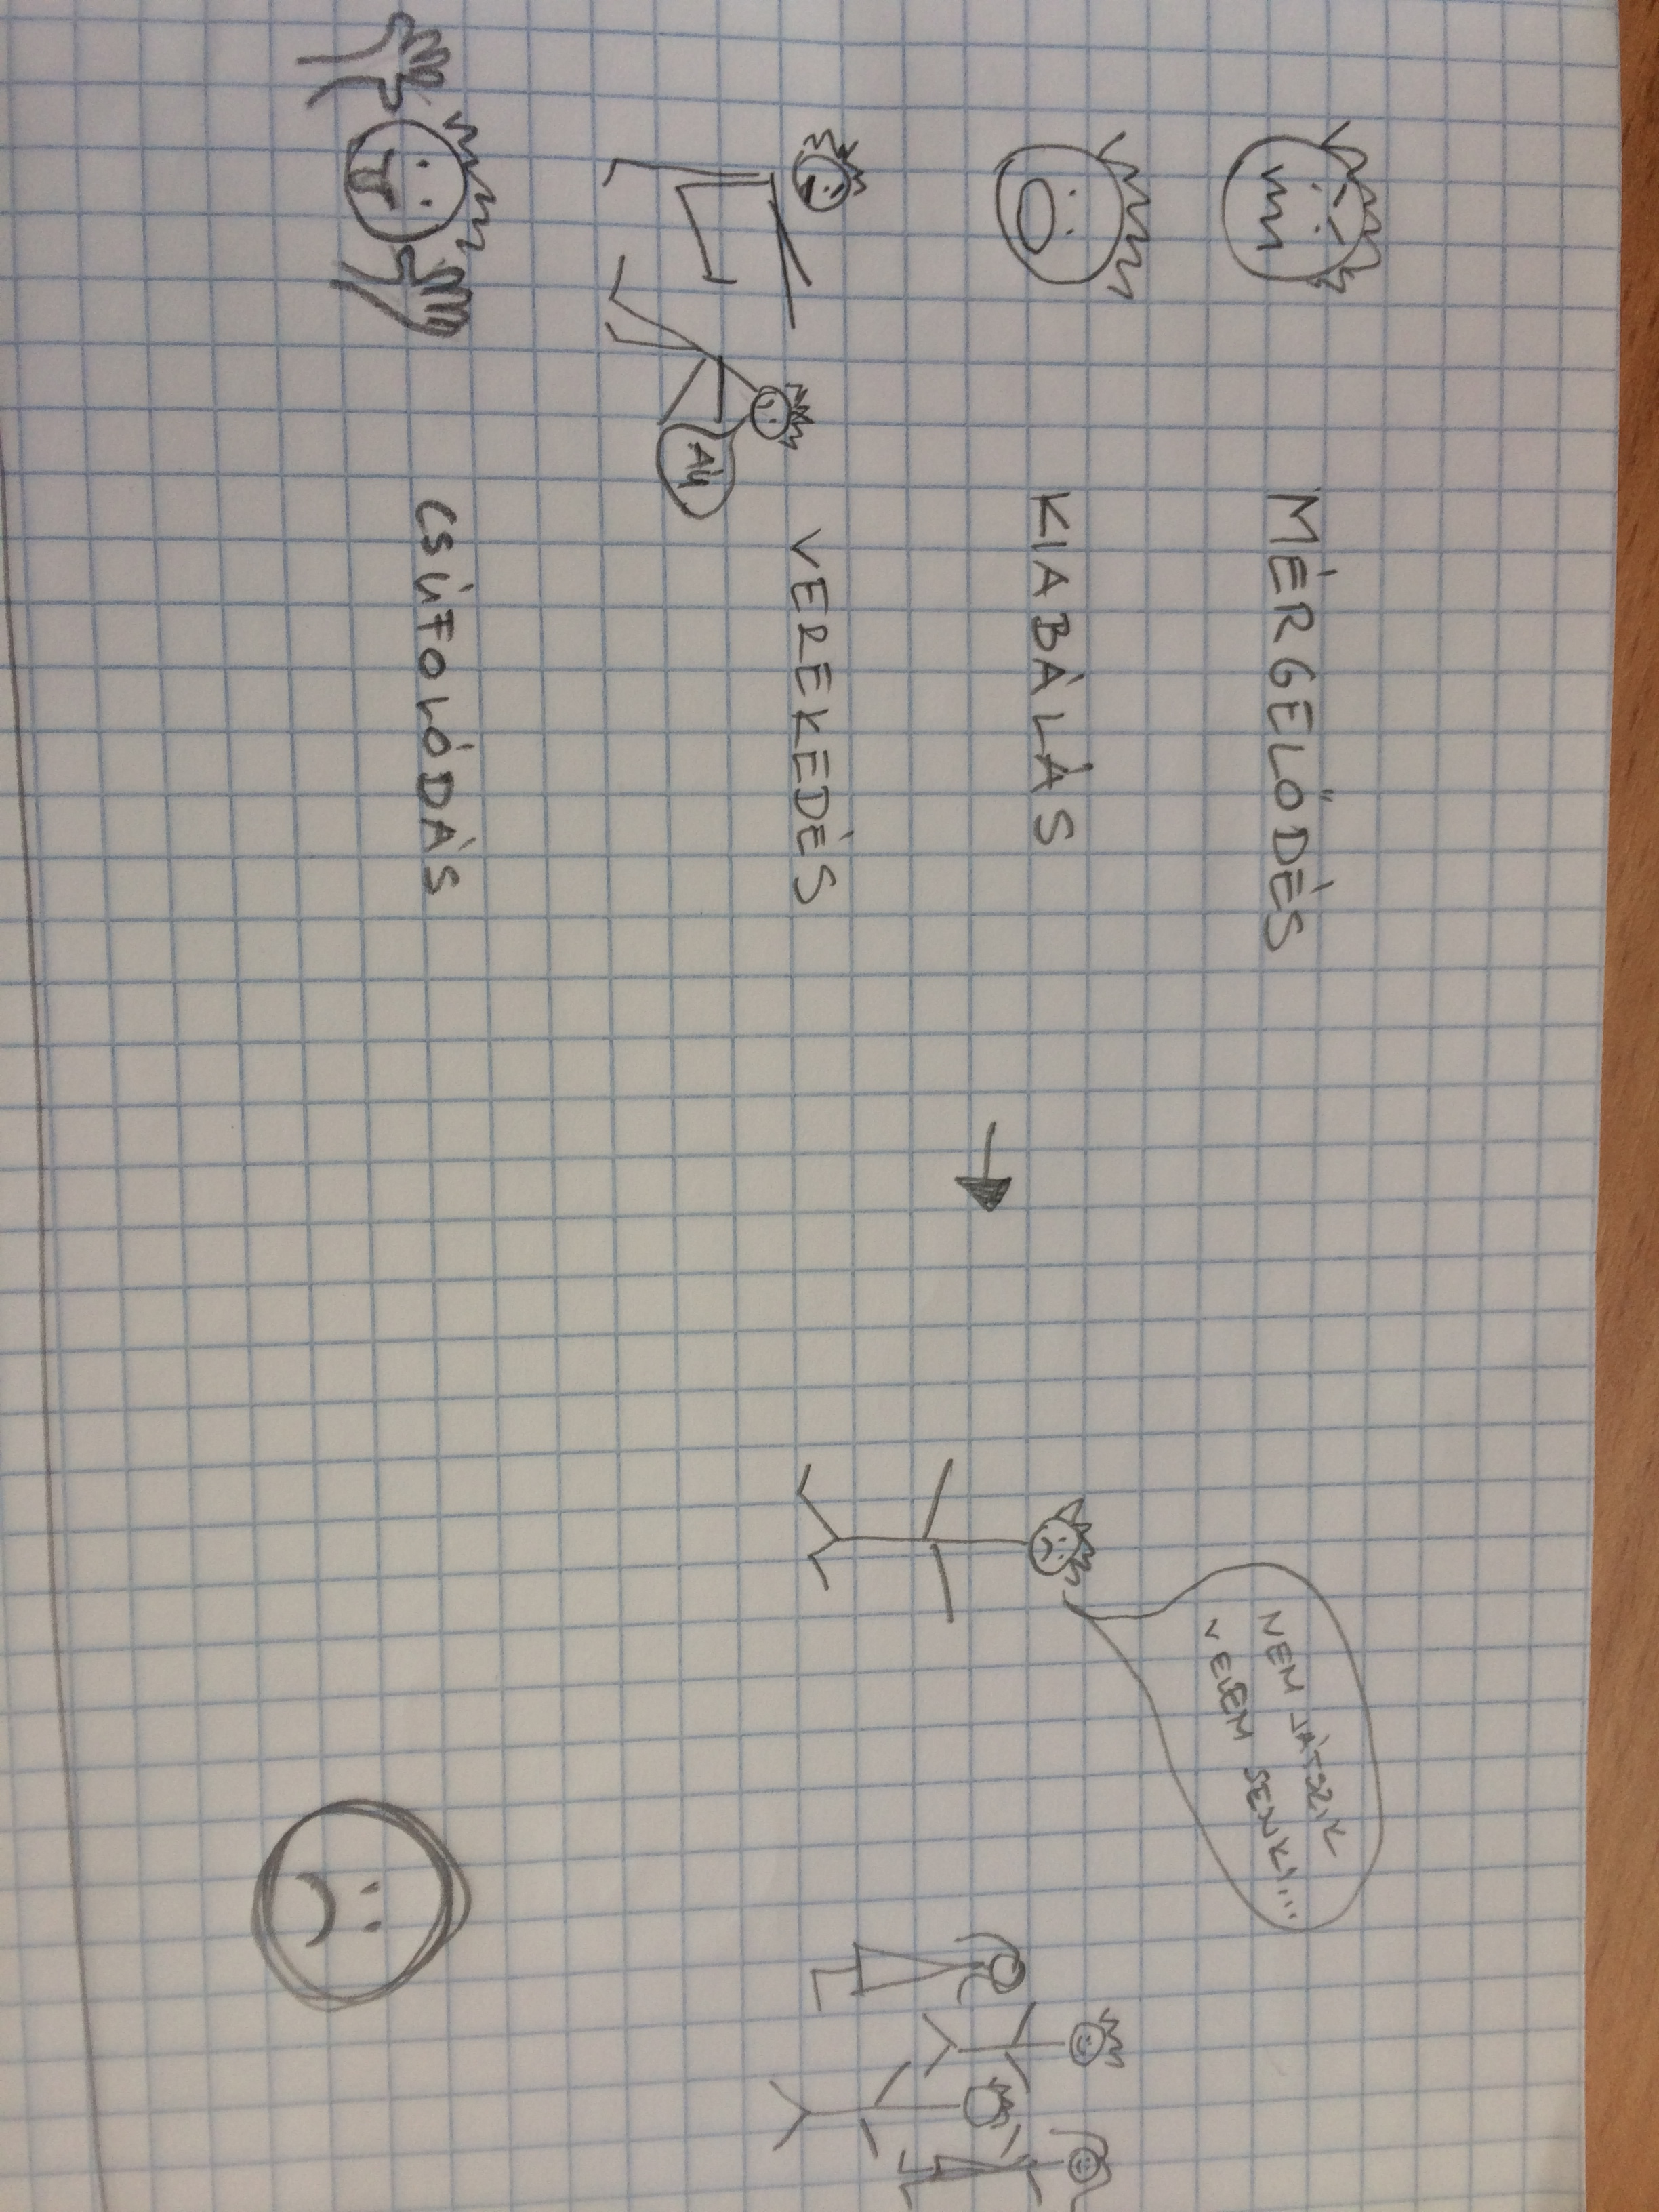 MÉRGELŐDÉS
KIABÁLÁS
VEREKEDÉS
CSÚFOLÓDÁS
NEM JÁTSZIK
VELEM SENKI...